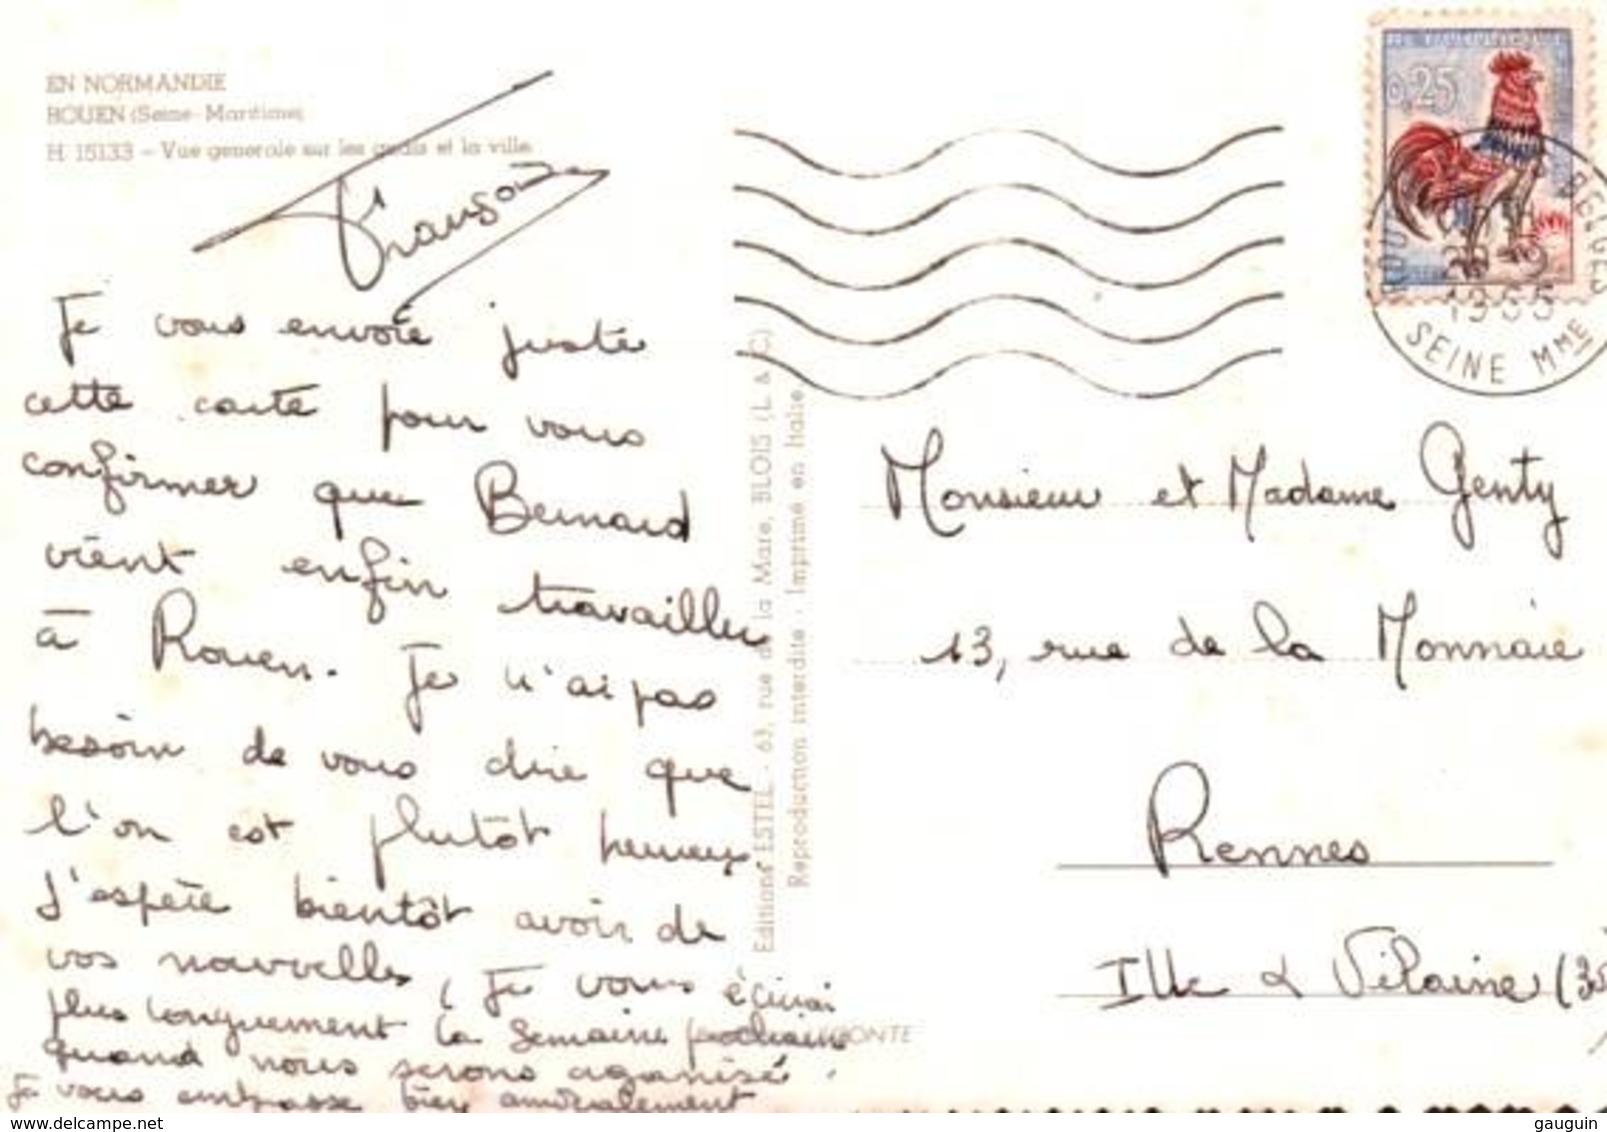 EN NORMANDIE
ROUEN (Seine-Maritime)
H. 15133 - Vue generale sur les quais et la ville
Je vous envoie juste
cette carte pour vous
confirmer que Bernard
vient enfin travailler
à Rouen. Je n'ai pas
besoin de vous dire que
l'on est plutôt heureux.
J'espère bientôt avoir de
vos nouvelles, Je vous écrirai
plus longuement la semaine prochaine
quand nous serons organisé.
Je vous embrasse bien amicalement
Editions ESTEL - 63, rue de la Mare, BLOIS (L. & C.)
Reproduction interdite - Imprimé en Italie
0,25
BELGES
1965
SEINE MME
Monsieur et Madame Genty
13, rue de la Monnaie
Rennes
Ille & Vilaine (35
delcampe.net
gauguin